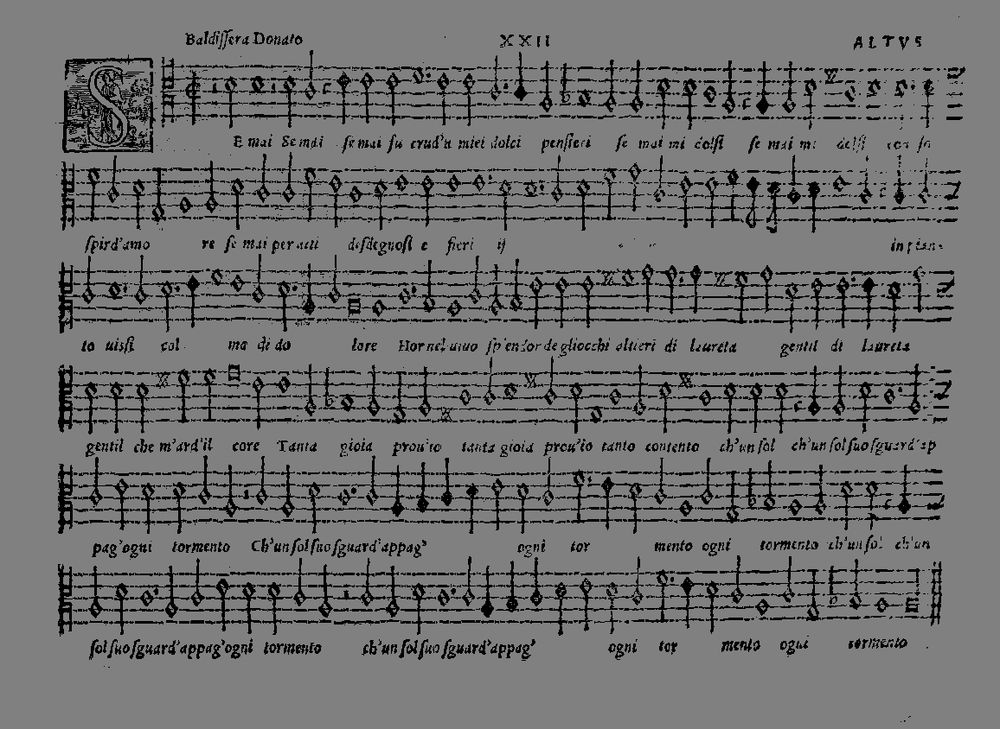 Baldissera Donato XXII ALTVS
S E mai Se mai se mai fu crud'a miei dolci pensieri se mai mi dolsi se mai mi dolsi
spird'amo re se mai per atti disdegnosi e fieri ij in pian
to uissi col ma di do lore Hor nel uiuo splendor de gliocchi altieri di laureta gentil di laureta
gentil che m'ard'il core Tanta gioia prou'io tanta gioia prou'io tanto contento ch'un sol ch'un sol suo sguard'ap
pag'ogni tormento Ch'un sol suo sguard'appag' ogni tor mento ogni tormento ch'un sol ch'un
sol suo sguard'appag'ogni tormento ch'un sol suo sguard'appag' ogni tor mento ogni tormento